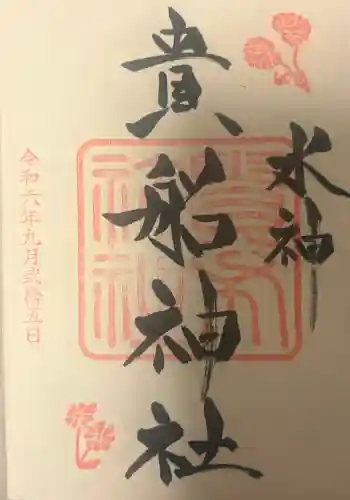 水神
貴船神社
令和六年九月弐拾五日